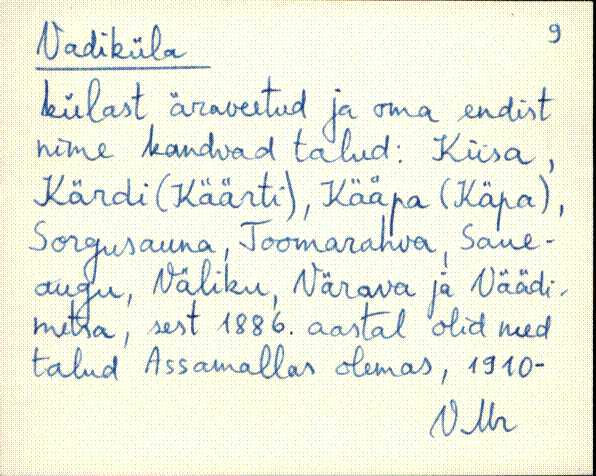 9
Vadiküla
külast äraveetud ja oma endist
nime kandvad talud: Kiisa,
Kärdi (Käärti), Kääpa (Käpa),
Sorgusauna, Toomarahva, Saue-
augu, Väliku, Värava ja Väädi-
metsa, sest 1886. aastal olid need
talud Assamallas olemas, 1910-
VMr